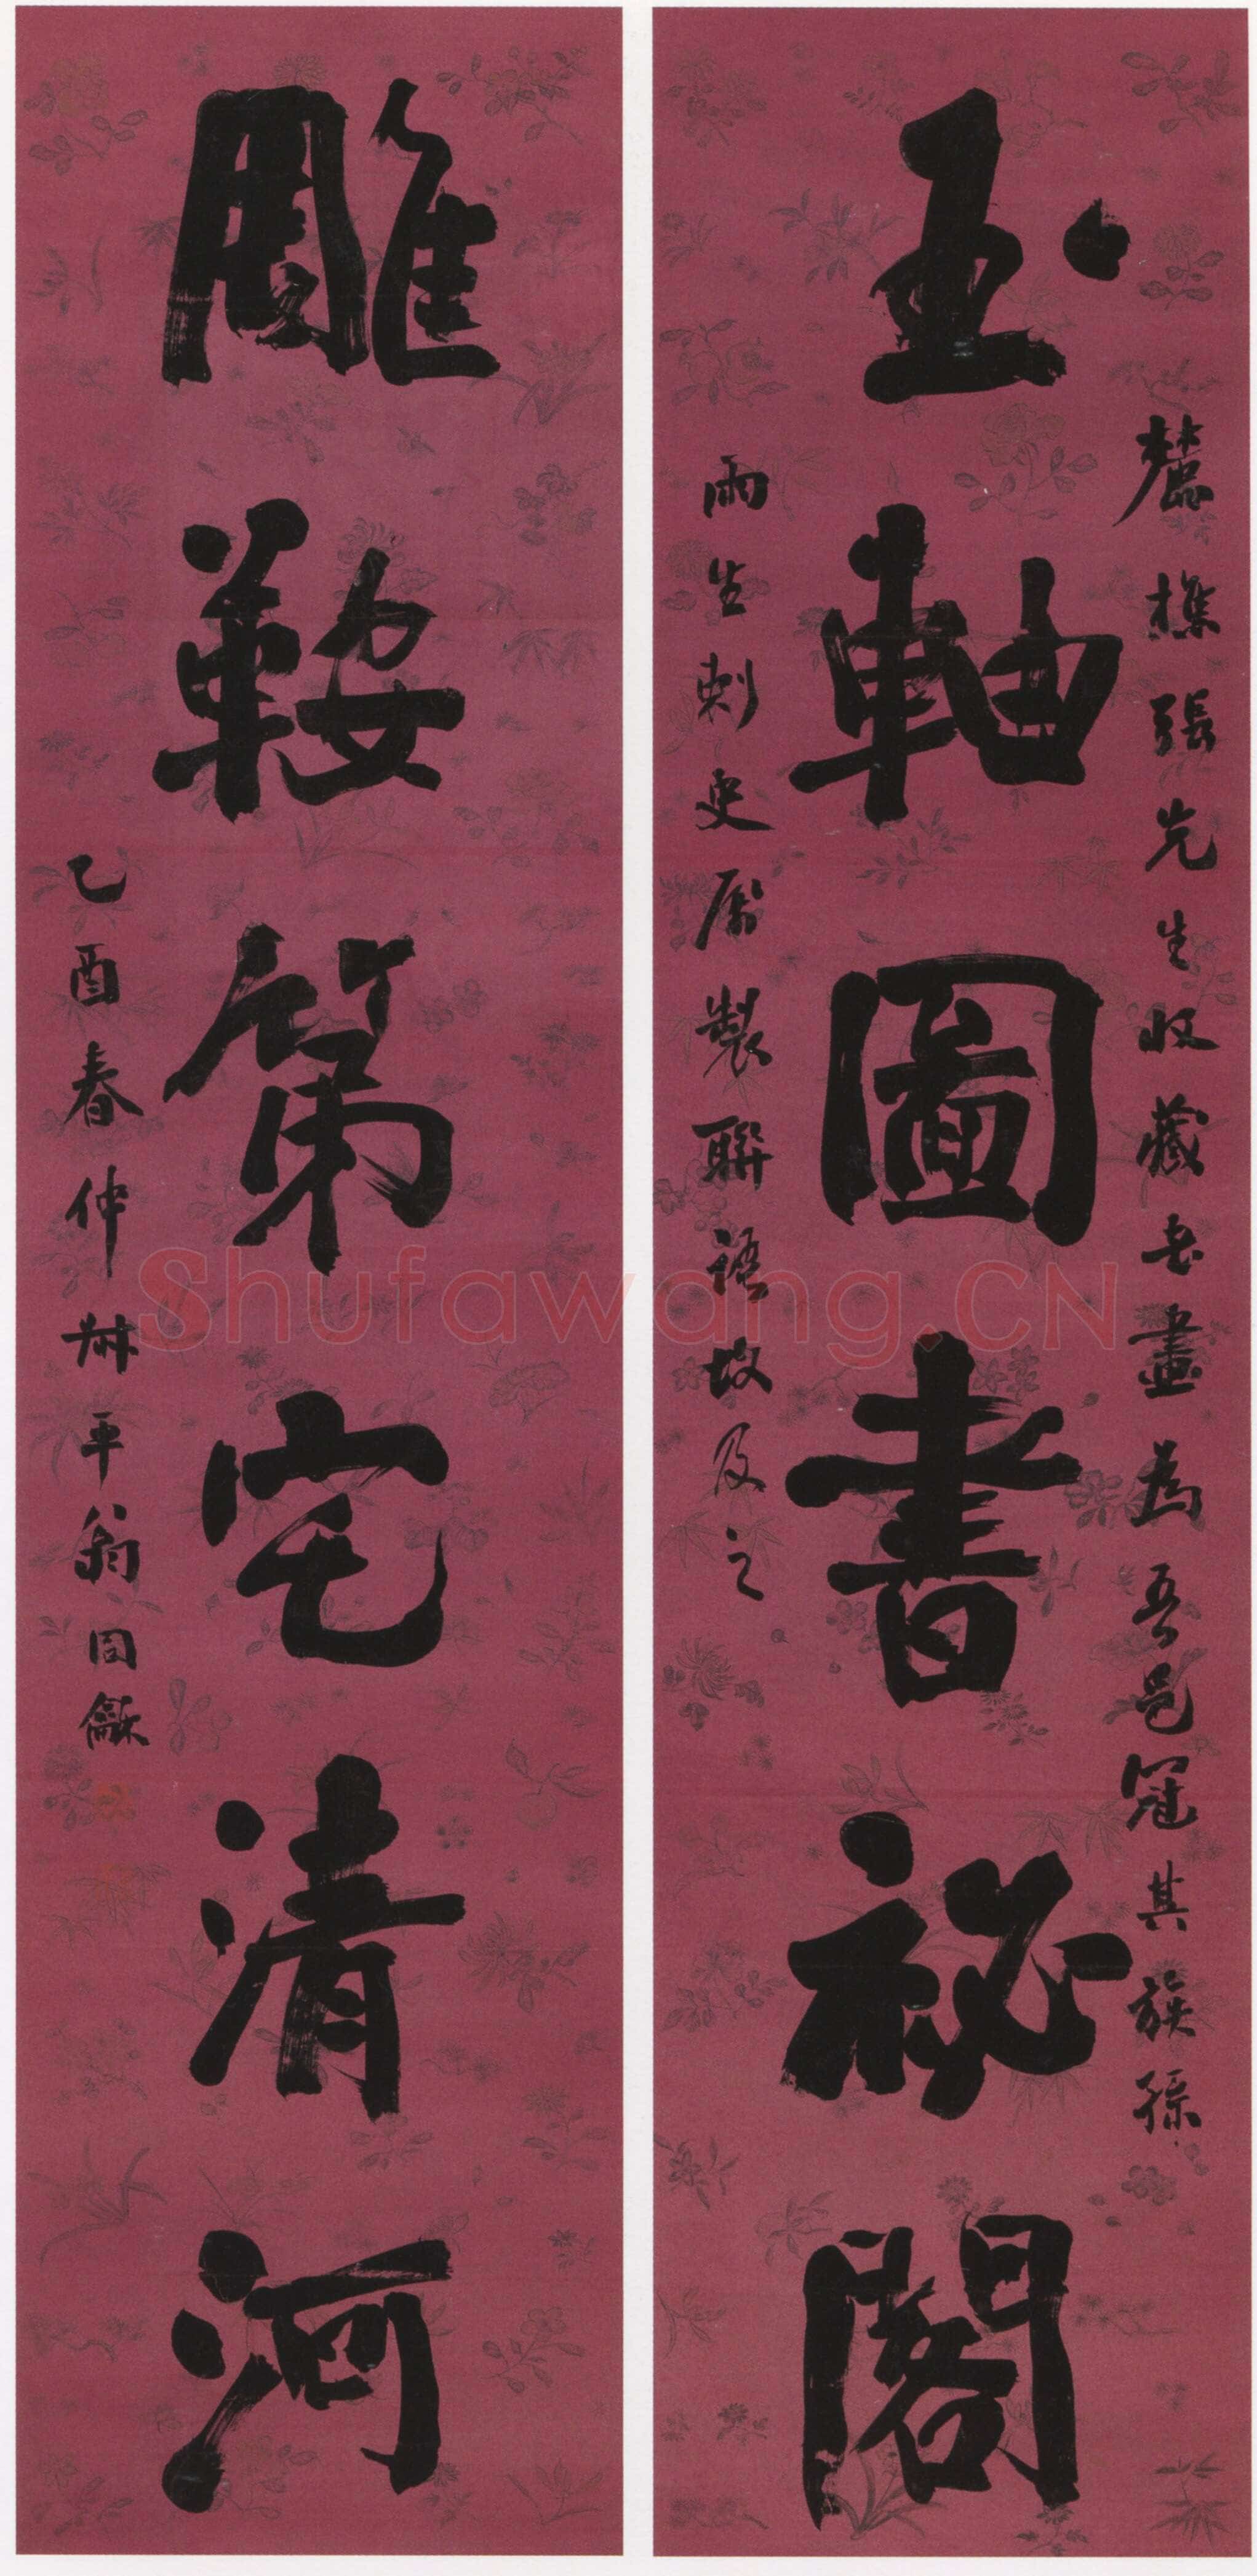 麓樵張先生收藏书畫為吾邑冠其族孫
玉軸圖書祕閣
雨生刺史属製聯語故及之
雕鞍第宅清河
乙酉春仲尗平翁同龢
Shufawang.CN